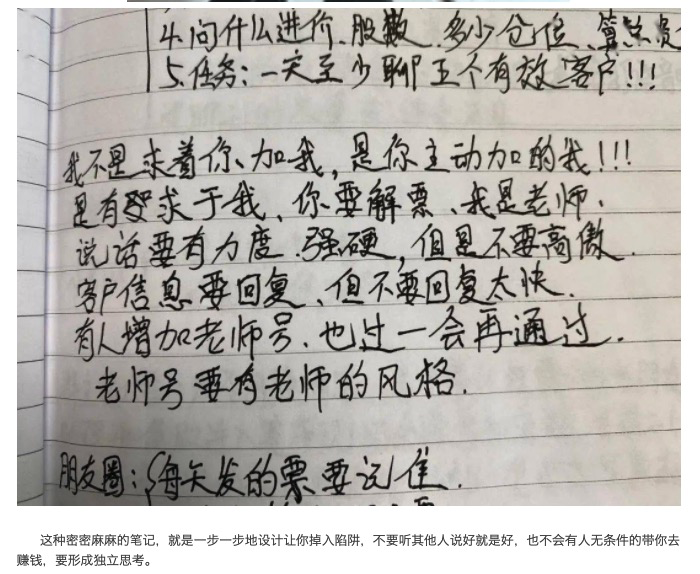 4.问什么进价、股数、多少仓位、算总资
5.任务:一天至少聊五个有效客户!!!
我不是求着你、加我,是你主动加的我!!!
是有要求于我、你要解票、我是老师.
说话要有力度.强硬,但是不要高傲.
客户信息要回复、但不要回复太快.
有人增加老师号、也过一会再通过.
老师号要有老师的风格.
朋友圈:每天发的票要记住.
这种密密麻麻的笔记,就是一步一步地设计让你掉入陷阱,不要听其他人说好就是好,也不会有人无条件的带你去
赚钱,要形成独立思考。